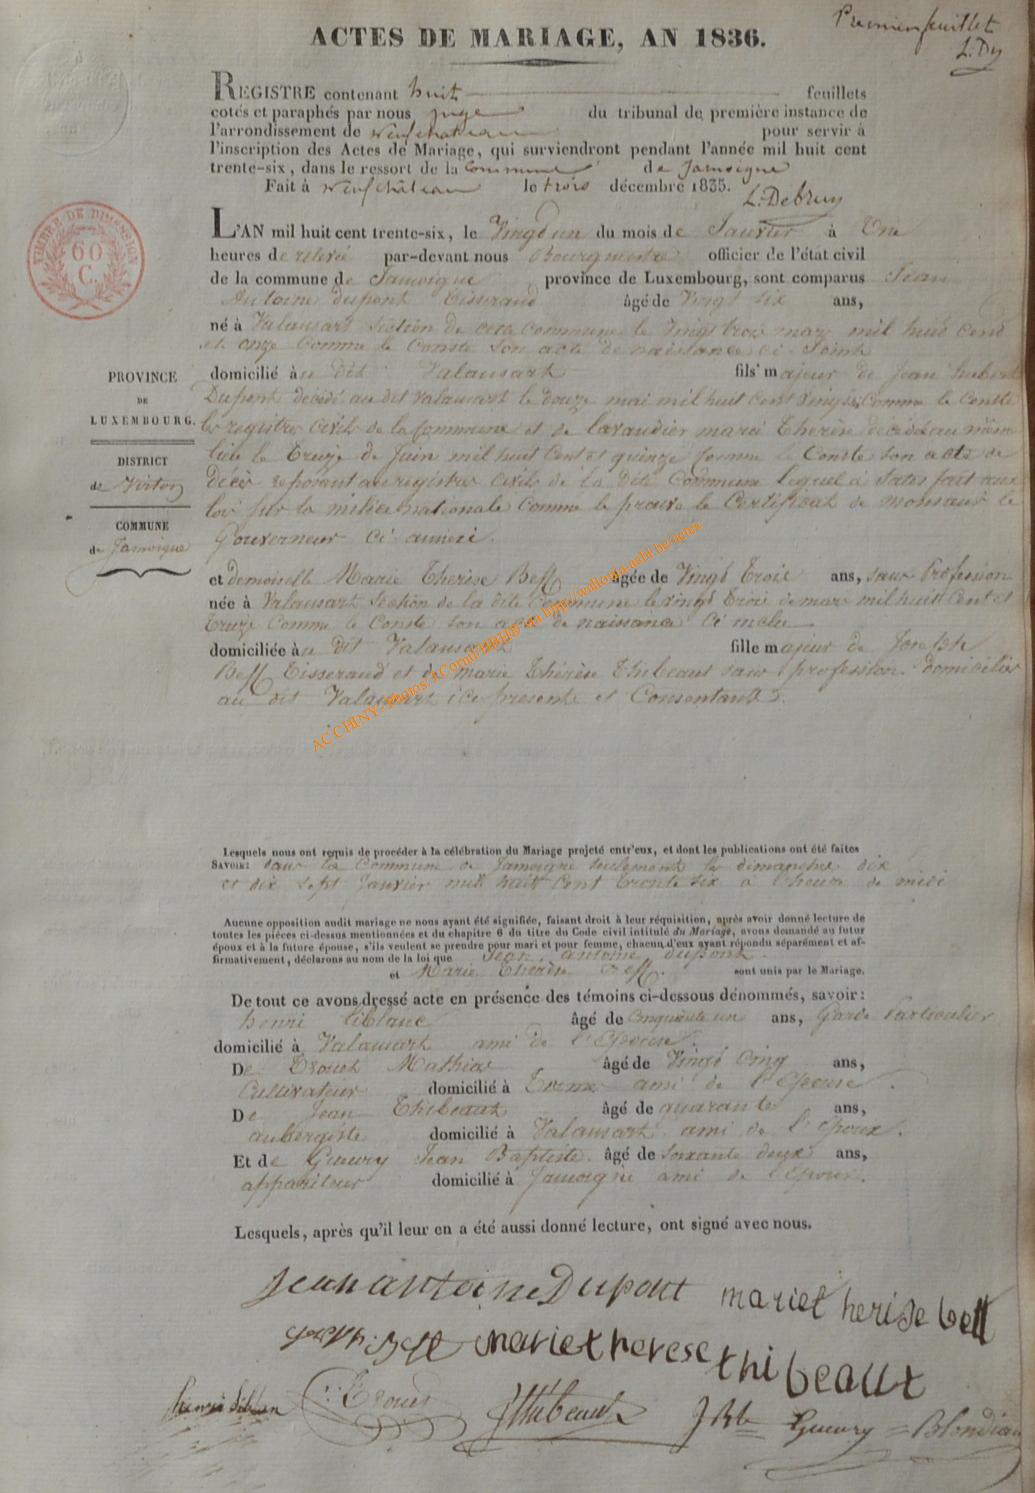 Premier feuillet
L. Dy
ACTES DE MARIAGE, AN 1836.
REGISTRE contenant huit feuillets
cotés et paraphés par nous juge du tribunal de première instance de
l'arrondissement de Neufchateau pour servir à
l'inscription des Actes de Mariage, qui surviendront pendant l'année mil huit cent
trente-six, dans le ressort de la Commune de Jamoigne
Fait à Neufchâteau le trois décembre 1835.
L. Debruy
TIMBRE DE DIMENSION
60
C.
L'AN mil huit cent trente-six, le Vingt un du mois de Janvier à Une
heures de relevé par-devant nous Bourgmestre officier de l'état civil
de la commune de Jamoigne province de Luxembourg, sont comparus Jean
Antoine dupont Tisserand âgé de Vingt Six ans,
né à Valansart Section de cette Commune le Vingt trois mars mil huit cent
et onze Comme le Conste Son acte de naissance ci Joint
domicilié au dit Valansart fils majeur de Jean hubert
Dupont décédé au dit Valansart le douze mai mil huit cent Vingt Comme le Conste
le registre Civils de la Commune et de lavaudier marie Therèse décédée au même
lieu le Treize de Juin mil huit Cent et quinze Comme le Conste son acte de
décès reposant au registres Civils de la dite Commune lequel a Satisfait aux
loi sur la milice nationale Comme le prouve le Certificat de monsieur le
Gouverneur Ci annexé.
PROVINCE
DE
LUXEMBOURG.
DISTRICT
de Virton
COMMUNE
de Jamoigne
et demoiselle Marie Therèse Bell agée de Vingt Trois ans, sans Profession
née à Valansart Section de la dite Commune le vingt Trois de mars mil huit Cent et
Treize Comme le Conste son acte de naissance Ci inclu
domiciliée au dit Valansart fille majeur de Joseph
Bell Tisserand et de marie Thérèse Thibeaut sans profession domiciliés
au dit Valansart ici présents et Consentants.
ACCHINY - Photos J.Cornil via http://wallonia-asbl.be/actes
Lesquels nous ont requis de procéder à la célébration du Mariage projeté entr'eux, et dont les publications ont été faites
SAVOIR: dans la Commune de Jamoigne seulement les dimanches dix
et dix sept Janvier mil huit Cent trente six à l'heure de midi
Aucune opposition audit mariage ne nous ayant été signifiée, faisant droit à leur réquisition, après avoir donné lecture de
toutes les pièces ci-dessus mentionnées et du chapitre 6 du titre du Code civil intitulé du Mariage, avons demandé au futur
époux et à la future épouse, s'ils veulent se prendre pour mari et pour femme, chacun d'eux ayant répondu séparément et af-
firmativement, déclarons au nom de la loi que Jean antoine dupont
et Marie Therèse Bell. sont unis par le Mariage.
De tout ce avons dressé acte en présence des témoins ci-dessous dénommés, savoir:
henri liblanc âgé de Cinquante un ans, Garde Particulier
domicilié à Valansart ami de l'Epouse.
De Trouet Mathias âgé de Vingt Cinq ans,
Cultivateur domicilié à Termes ami de l'Epouse.
De Jean Thibeaux âgé de quarante ans,
aubergiste domicilié à Valansart ami de l'époux.
Et de Gueury Jean Baptiste. âgé de Soixante deux ans,
appariteur domicilié à Jamoigne ami de l'Epoux.
Lesquels, après qu'il leur en a été aussi donné lecture, ont signé avec nous.
Jean antoine Dupont mariet herise bell
Joseph Bell mariet herese thibeaux
Trouet JThibeaux JBte Gueury Blondiau